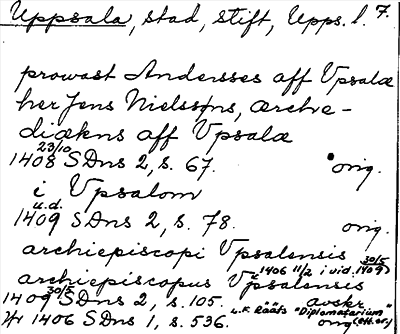 Uppsala, stad, stift, Upps. l. 7.
prowast Andersses aff Vpsalæ
her Jens Nielssøns, ærche-
diækens aff Vpsalæ
1408 23/10 SDns 2, s. 67. orig.
i Vpsalom
1409 u.d. SDns 2, s. 78. orig.
archiepiscopi Vpsalensis
1406 11/2 i vid. 1409 30/5
archiepiscopus Vpsalensis
1409 30/5 SDns 2, s. 105. avskr.
L.F. Rääfs "Diplomatarium"
1406 SDns 1, s. 536. orig